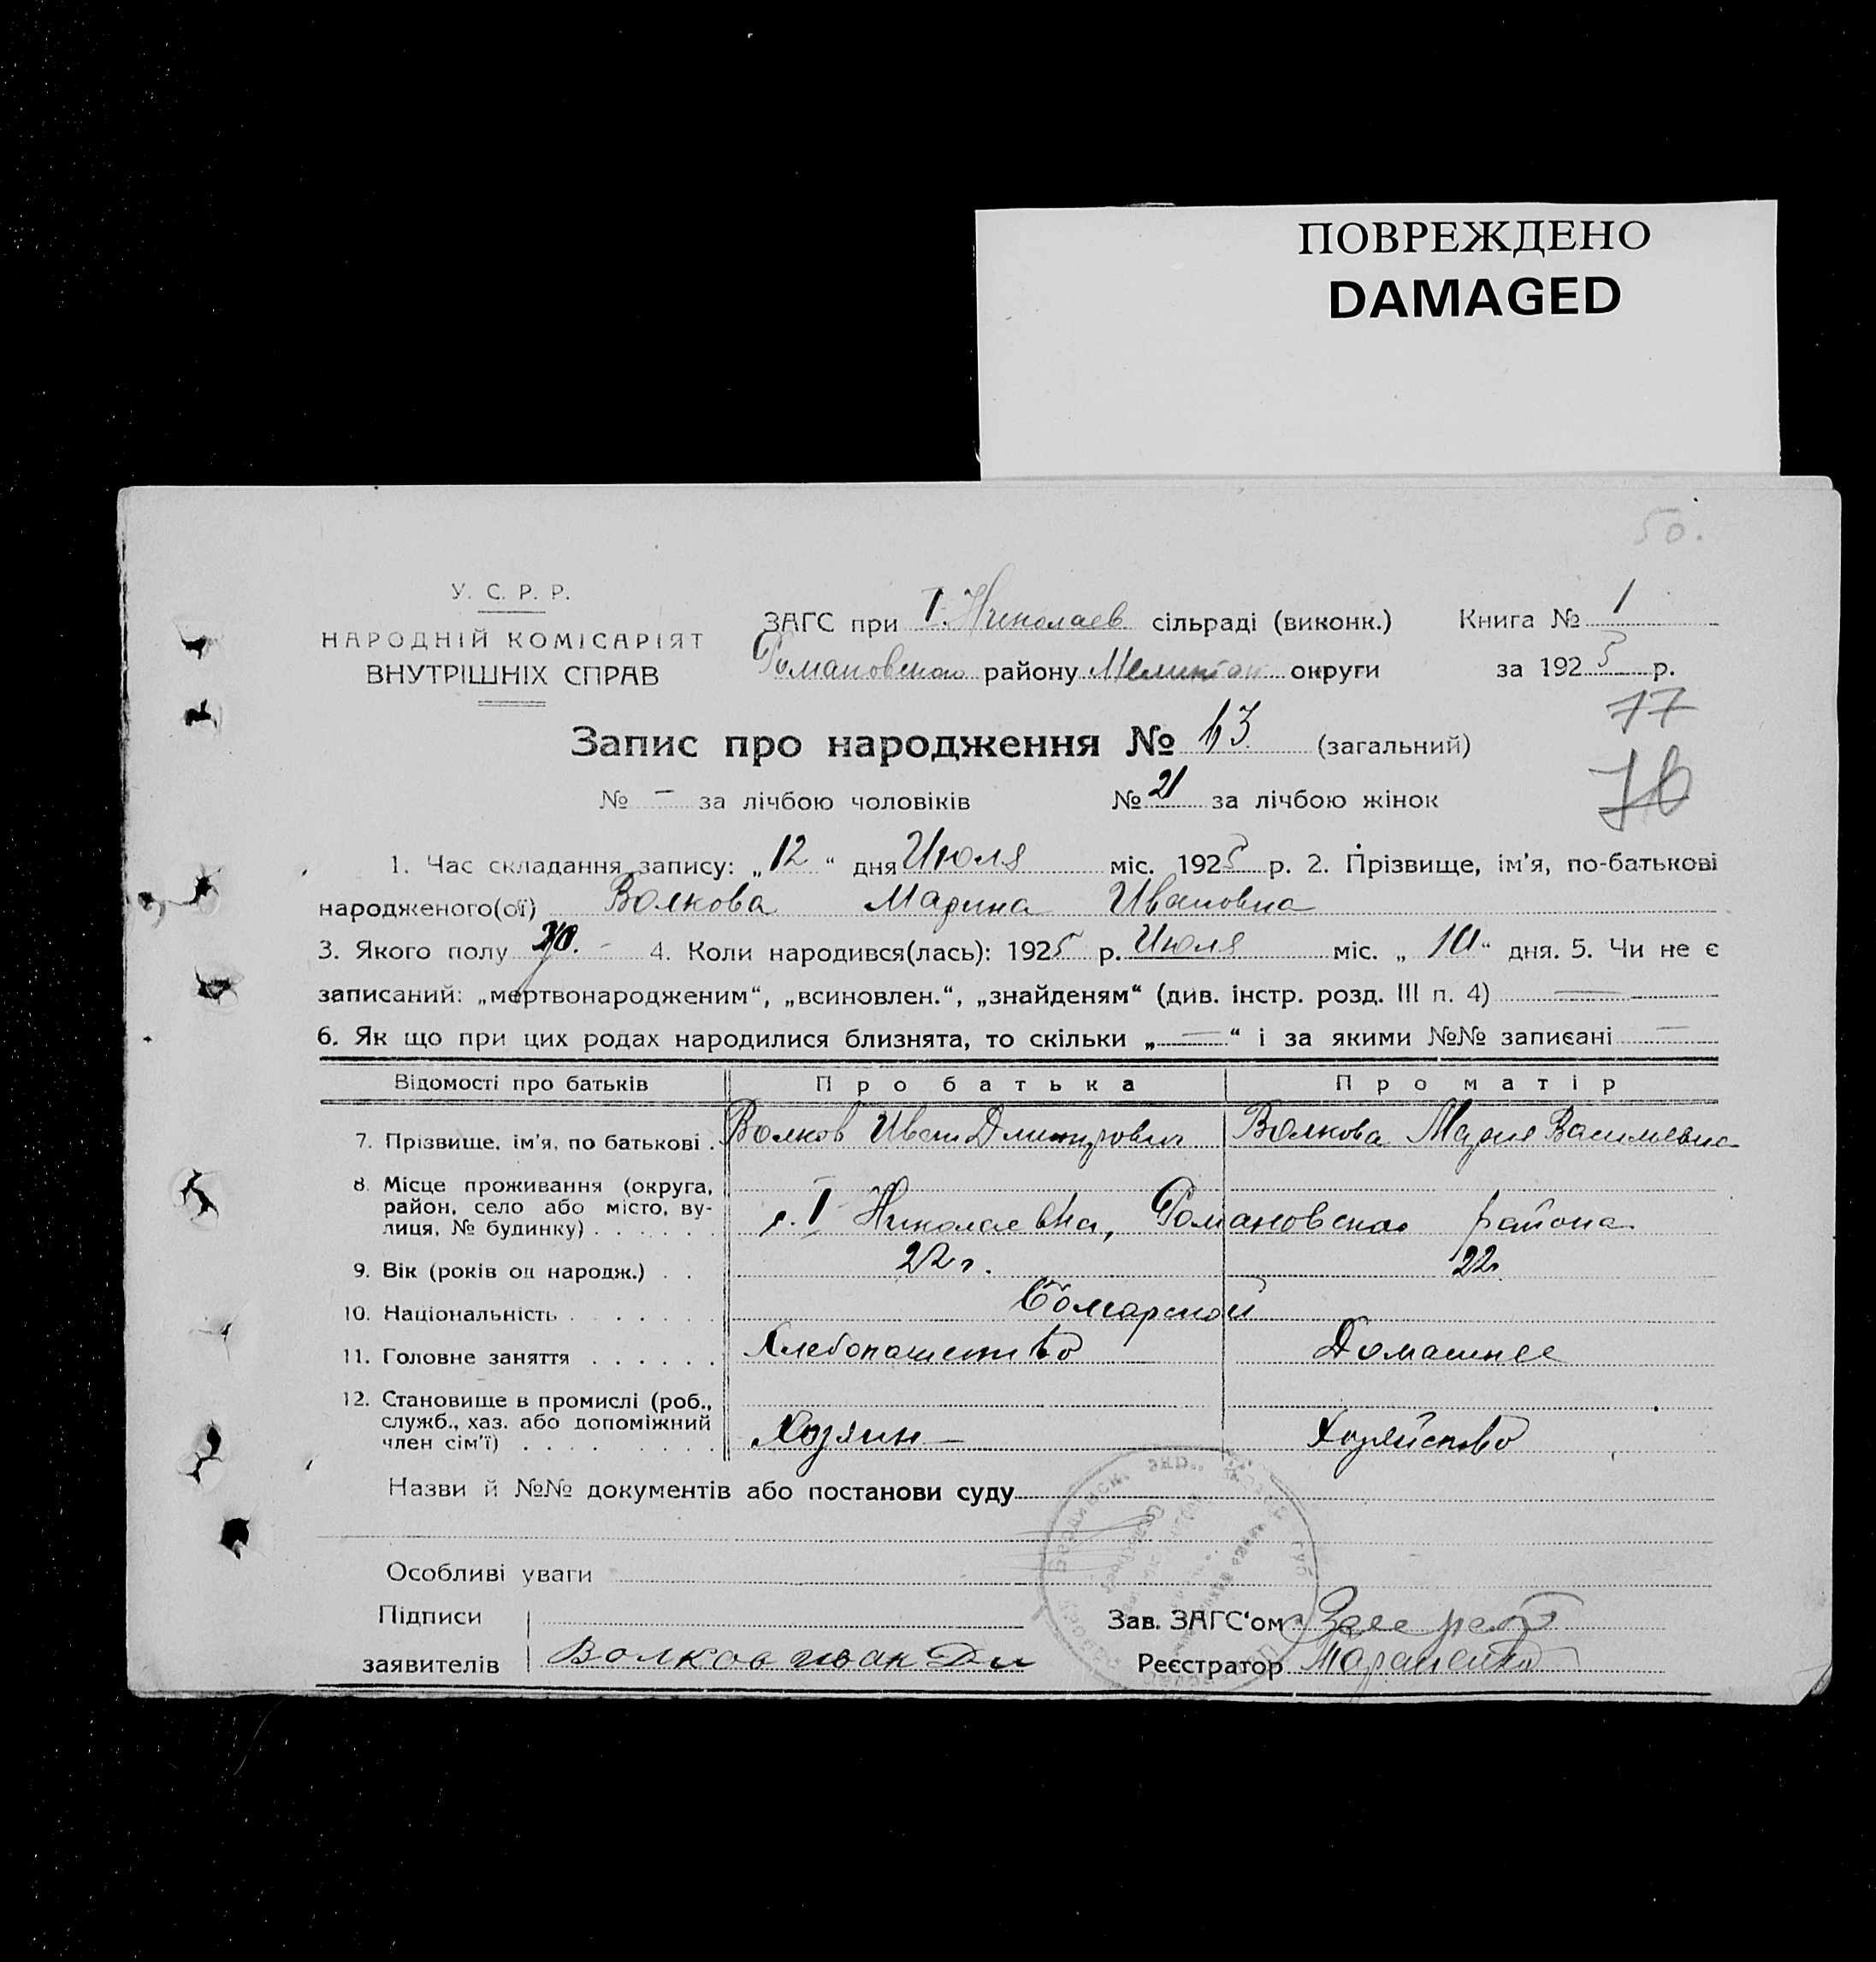 ПОВРЕЖДЕНО
DAMAGED
50.
У. С. Р. Р.
НАРОДНІЙ КОМІСАРІЯТ
ВНУТРІШНІХ СПРАВ
ЗАГС при I. Николаев сільраді (виконк.) Книга № 1
Романовского району Мелитоп округи за 1925 р.
77
Запис про народження № 63 (загальний)
76
№ – за лічбою чоловіків № 21 за лічбою жінок
1. Час складання запису: „12“ дня Июля міс. 1925 р. 2. Прізвище, ім'я, по-батькові
народженого(ої) Волкова Марина Ивановна
3. Якого полу ж. – 4. Коли народився(лась): 1925 р. Июля міс. „10“ дня. 5. Чи не є
записаний: „мертвонародженим“, „всиновлен.“, „знайденям“ (див. інстр. розд. III п. 4) —
6. Як що при цих родах народилися близнята, то скільки „—“ і за якими №№ записані —
Відомості про батьків Про батька Про матір
7. Прізвище, ім'я, по батькові . Волков Иван Дмитрович Волкова Мария Васильевна
8. Місце проживання (округа,
район, село або місто, ву-
лиця, № будинку) . . . . . . с. I Николаевка, Романовского района
9. Вік (років од народж.) . . 22 г. 22 г.
10. Національність . . . . . . . Болгарской
11. Головне заняття . . . . . . Хлебопашество Домашнее
12. Становище в промислі (роб.,
служб., хаз. або допоміжний
член сім'ї) . . . . . . . . . Хозяин – Хозяйство
Назви й №№ документів або постанови суду
Особливі уваги
Підписи
заявителів Волков иван Дм
Зав. ЗАГС'ом
Реєстратор